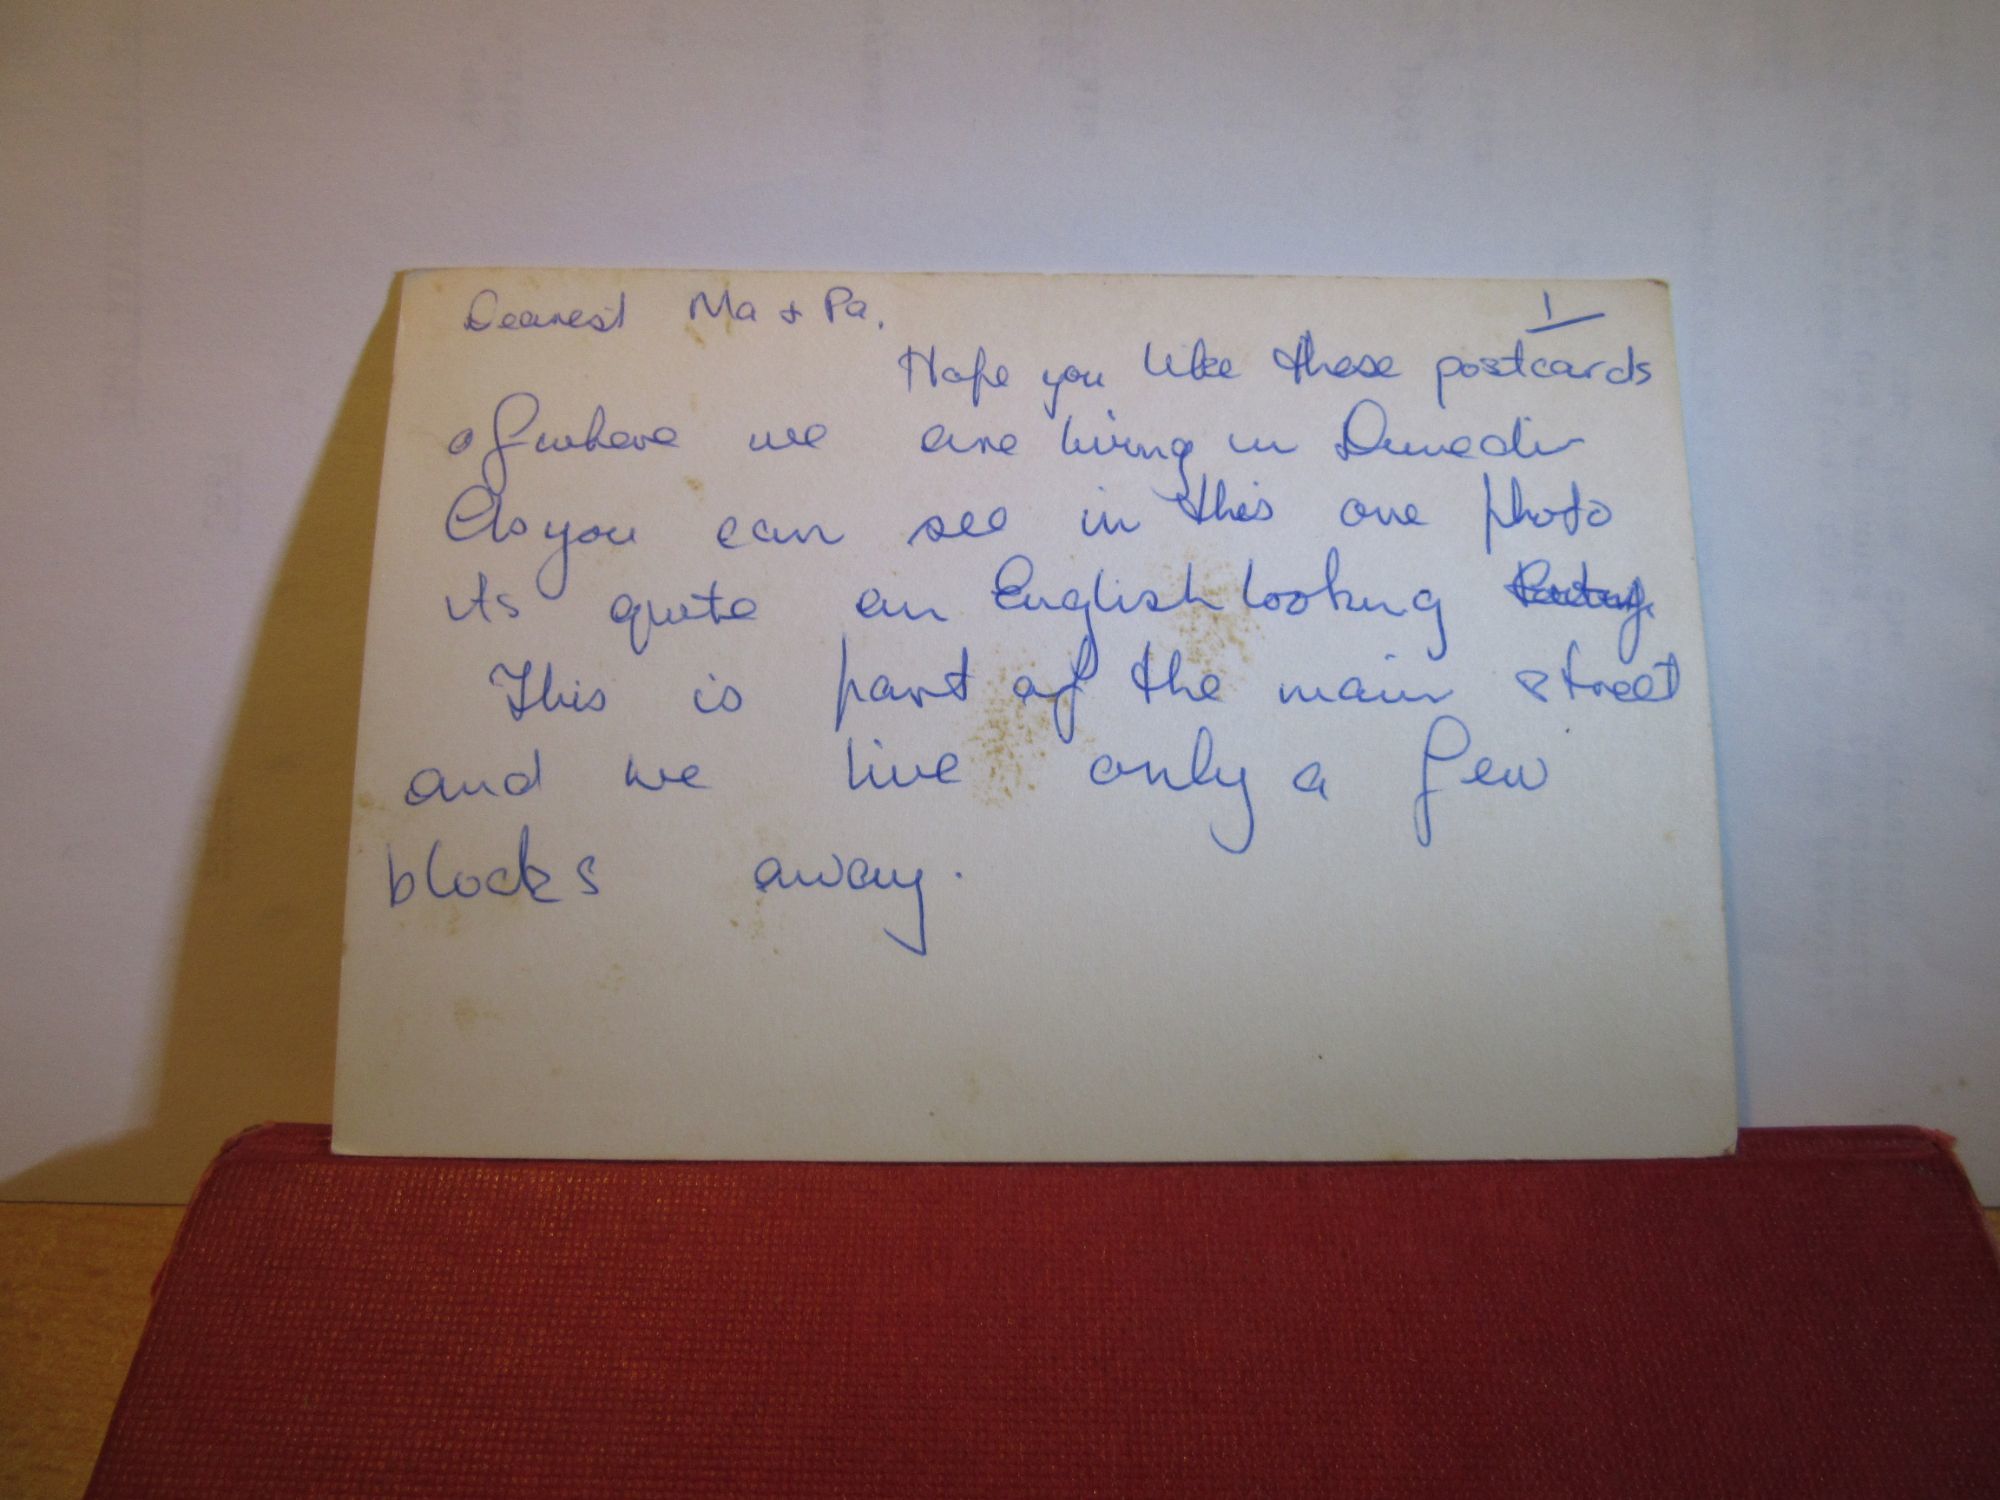 Dearest Ma + Pa,
1
Hope you like these postcards
of where we are living in Dunedin
As you can see in this one photo
its quite an English looking
This is part of the main street
and we live only a few
blocks away.